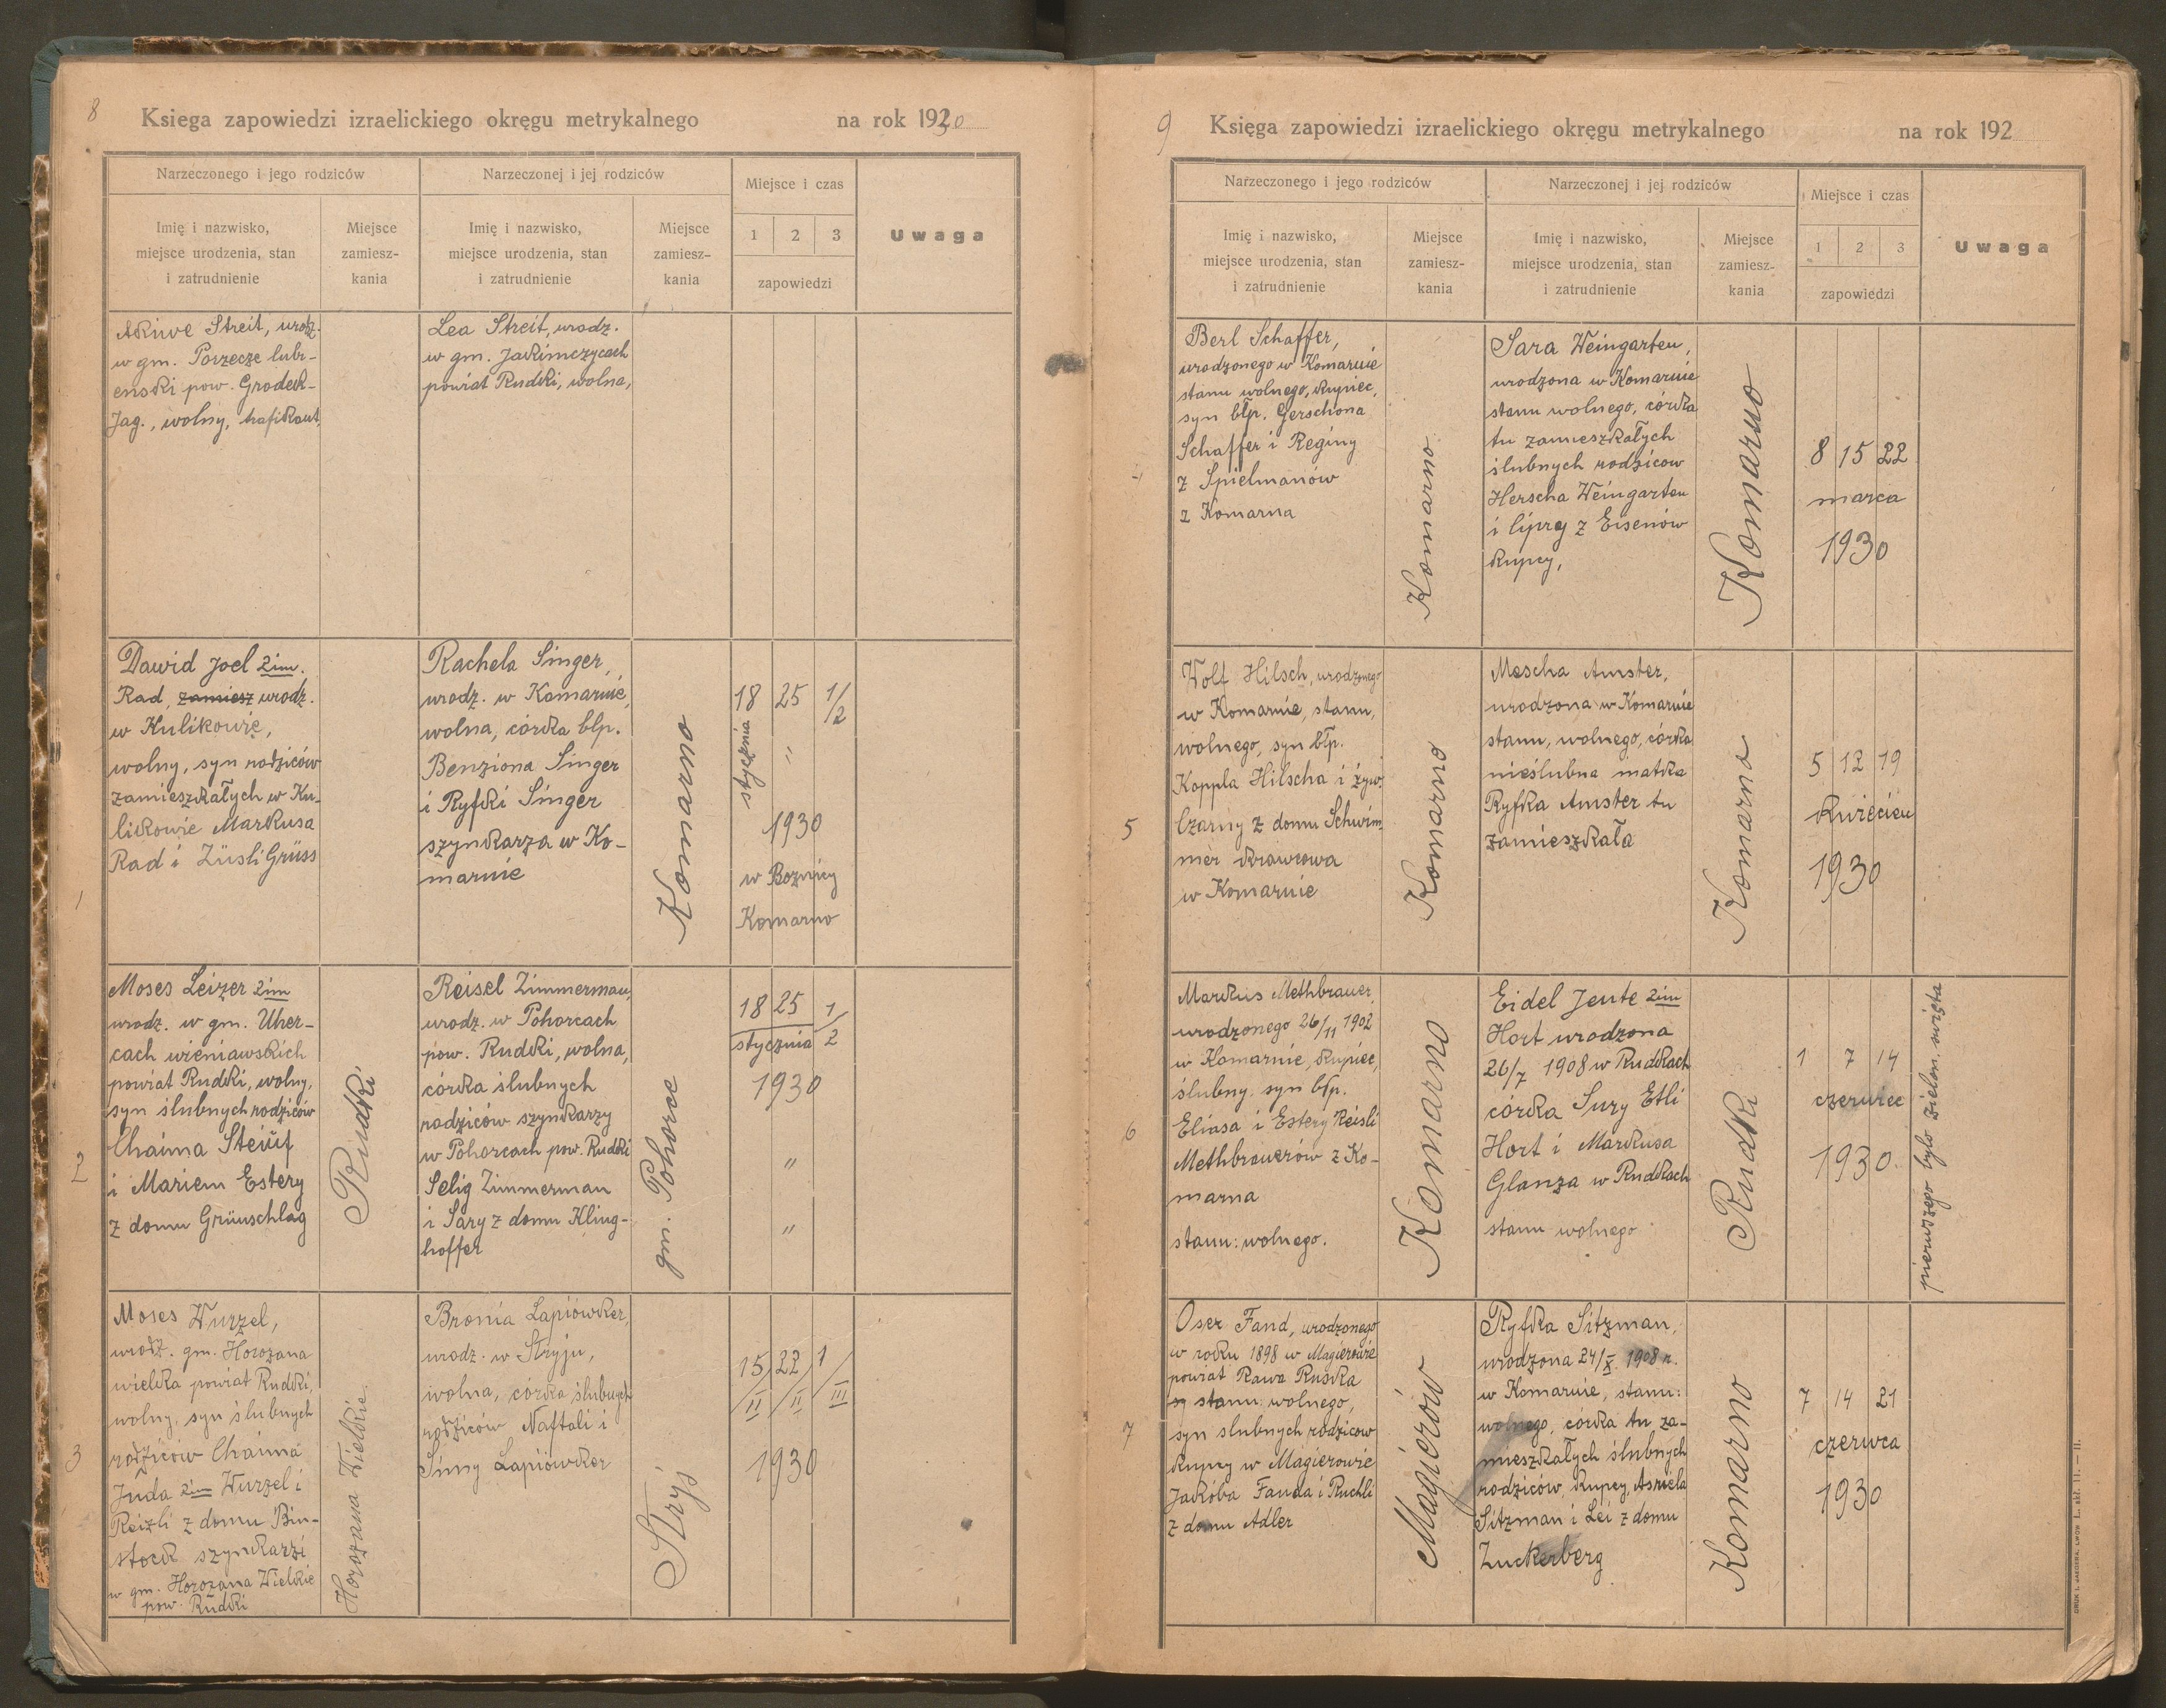 8
Księga zapowiedzi izraelickiego okręgu metrykalnego na rok 1930
Narzeczonego i jego rodziców
Narzeczonej i jej rodziców
Miejsce i czas
Uwaga
Imię i nazwisko,
miejsce urodzenia, stan
i zatrudnienie
Miejsce
zamiesz-
kania
Imię i nazwisko,
miejsce urodzenia, stan
i zatrudnienie
Miejsce
zamiesz-
kania
1 2 3
zapowiedzi
Akiwe Streit, urodz.
w gm. Porzecze lubi-
eński pow. Grodek-
Jag., wolny, trafikant
Lea Streit, urodz.
w gm. Jakimczycach
powiat Rudki, wolna,
1
Dawid Joel zim.
Rad, zamiesz urodz.
w Kulikowie,
wolny, syn rodziców
zamieszkałych w Ku-
likowie Markusa
Rad i Züsli Grüss
Rachela Singer,
urodz. w Komarnie,
wolna, córka błp.
Benziona Singer
i Ryfki Singer
szynkarza w Ko-
marnie
Komarno
18 25 1/2
stycznia "
1930
w Bożnicy
Komarno
2
Moses Leizer zim
urodz. w gm. Uher-
cach wieniawskich
powiat Rudki, wolny,
syn ślubnych rodziców
Chaima
i Mariem Estery
z domu Grünschlag
Rudki
Reisel Zimmerman,
urodz. w Pohorcach
pow. Rudki, wolna,
córka ślubnych
rodziców szynkarzy
w Pohorcach pow. Rudki
Selig Zimmerman
i Sary z domu Kling-
hoffer
gm. Pohorce
18 25 1/2
stycznia
1930
"
"
3
Moses Wurzel,
urodz. gm. Horozana
wielka powiat Rudki,
wolny, syn ślubnych
rodziców Chaima
Juda zim Wurzel i
Reizli z domu Bin-
stock szynkarzi
w gm. Horozana Wielkie
pow. Rudki
Horozana Wielkie.
Bronia Lapiówker,
urodz. w Stryju,
wolna, córka ślubnych
rodziców Naftali i
Simy Lapiówker
Stryj
15/II 22/II 1/III
1930
9
Księga zapowiedzi izraelickiego okręgu metrykalnego na rok 192
Narzeczonego i jego rodziców
Narzeczonej i jej rodziców
Miejsce i czas
Uwaga
Imię i nazwisko,
miejsce urodzenia, stan
i zatrudnienie
Miejsce
zamiesz-
kania
Imię i nazwisko,
miejsce urodzenia, stan
i zatrudnienie
Miejsce
zamiesz-
kania
1 2 3
zapowiedzi
4
Berl Schaffer,
urodzonego w Komarnie
stanu wolnego, kupiec,
syn błp. Gerschona
Schaffer i Reginy
z Spielmanów
z Komarna
Komarno
Sara Weingarten,
urodzona w Komarnie
stanu wolnego, córka
tu zamieszkałych
ślubnych rodziców
Herscha Weingarten
i Cipry z Eisenów
kupcy,
Komarno
8 15 22
marca
1930
5
Wolf Hilsch, urodzonego
w Komarnie, stanu,
wolnego, syn błp.
Koppla Hilscha i żyw.
Czarny z domu Schwim-
mer krawcowa
w Komarnie
Komarno
Mescha Amster,
urodzona w Komarnie
stanu, wolnego, córka
nieślubna matka
Ryfka Amster tu
zamieszkała
Komarno
5 12 19
Kwiecien
1930
6
Markus Methbrauer,
urodzonego 26/11 1902
w Komarnie, kupiec,
ślubny syn błp.
Eliasa i Estery Reisli
Methbrauerów z Ko-
marna
stanu: wolnego.
Komarno
Eidel Jente zim
Hort urodzona
26/7 1908 w Rudkach
córka Sury Etli
Hort i Markusa
Glanza w Rudkach
stanu wolnego
Rudki
1 7 14
czerwiec
1930.
pierwszego było zielon. święta
7
Oser Fand, urodzonego
w roku 1898 w Magierowie
powiat Rawa Ruska
sy stanu wolnego,
syn slubnych rodzicow
kupcy w Magierowie
Jakóba Fanda i Ruchli
z domu Adler
Magierów
Ryfka Sitzman,
urodzona 24/X. 1908 r.
w Komarnie, stanu:
wolnego, córka tu za-
mieszkałych ślubnych
rodziców, kupcy, Asriela
Sitzman i Lei z domu
Zuckerberg
Komarno
7 14 21
czerwca
1930
DRUK I. JAEGERA, LWÓW